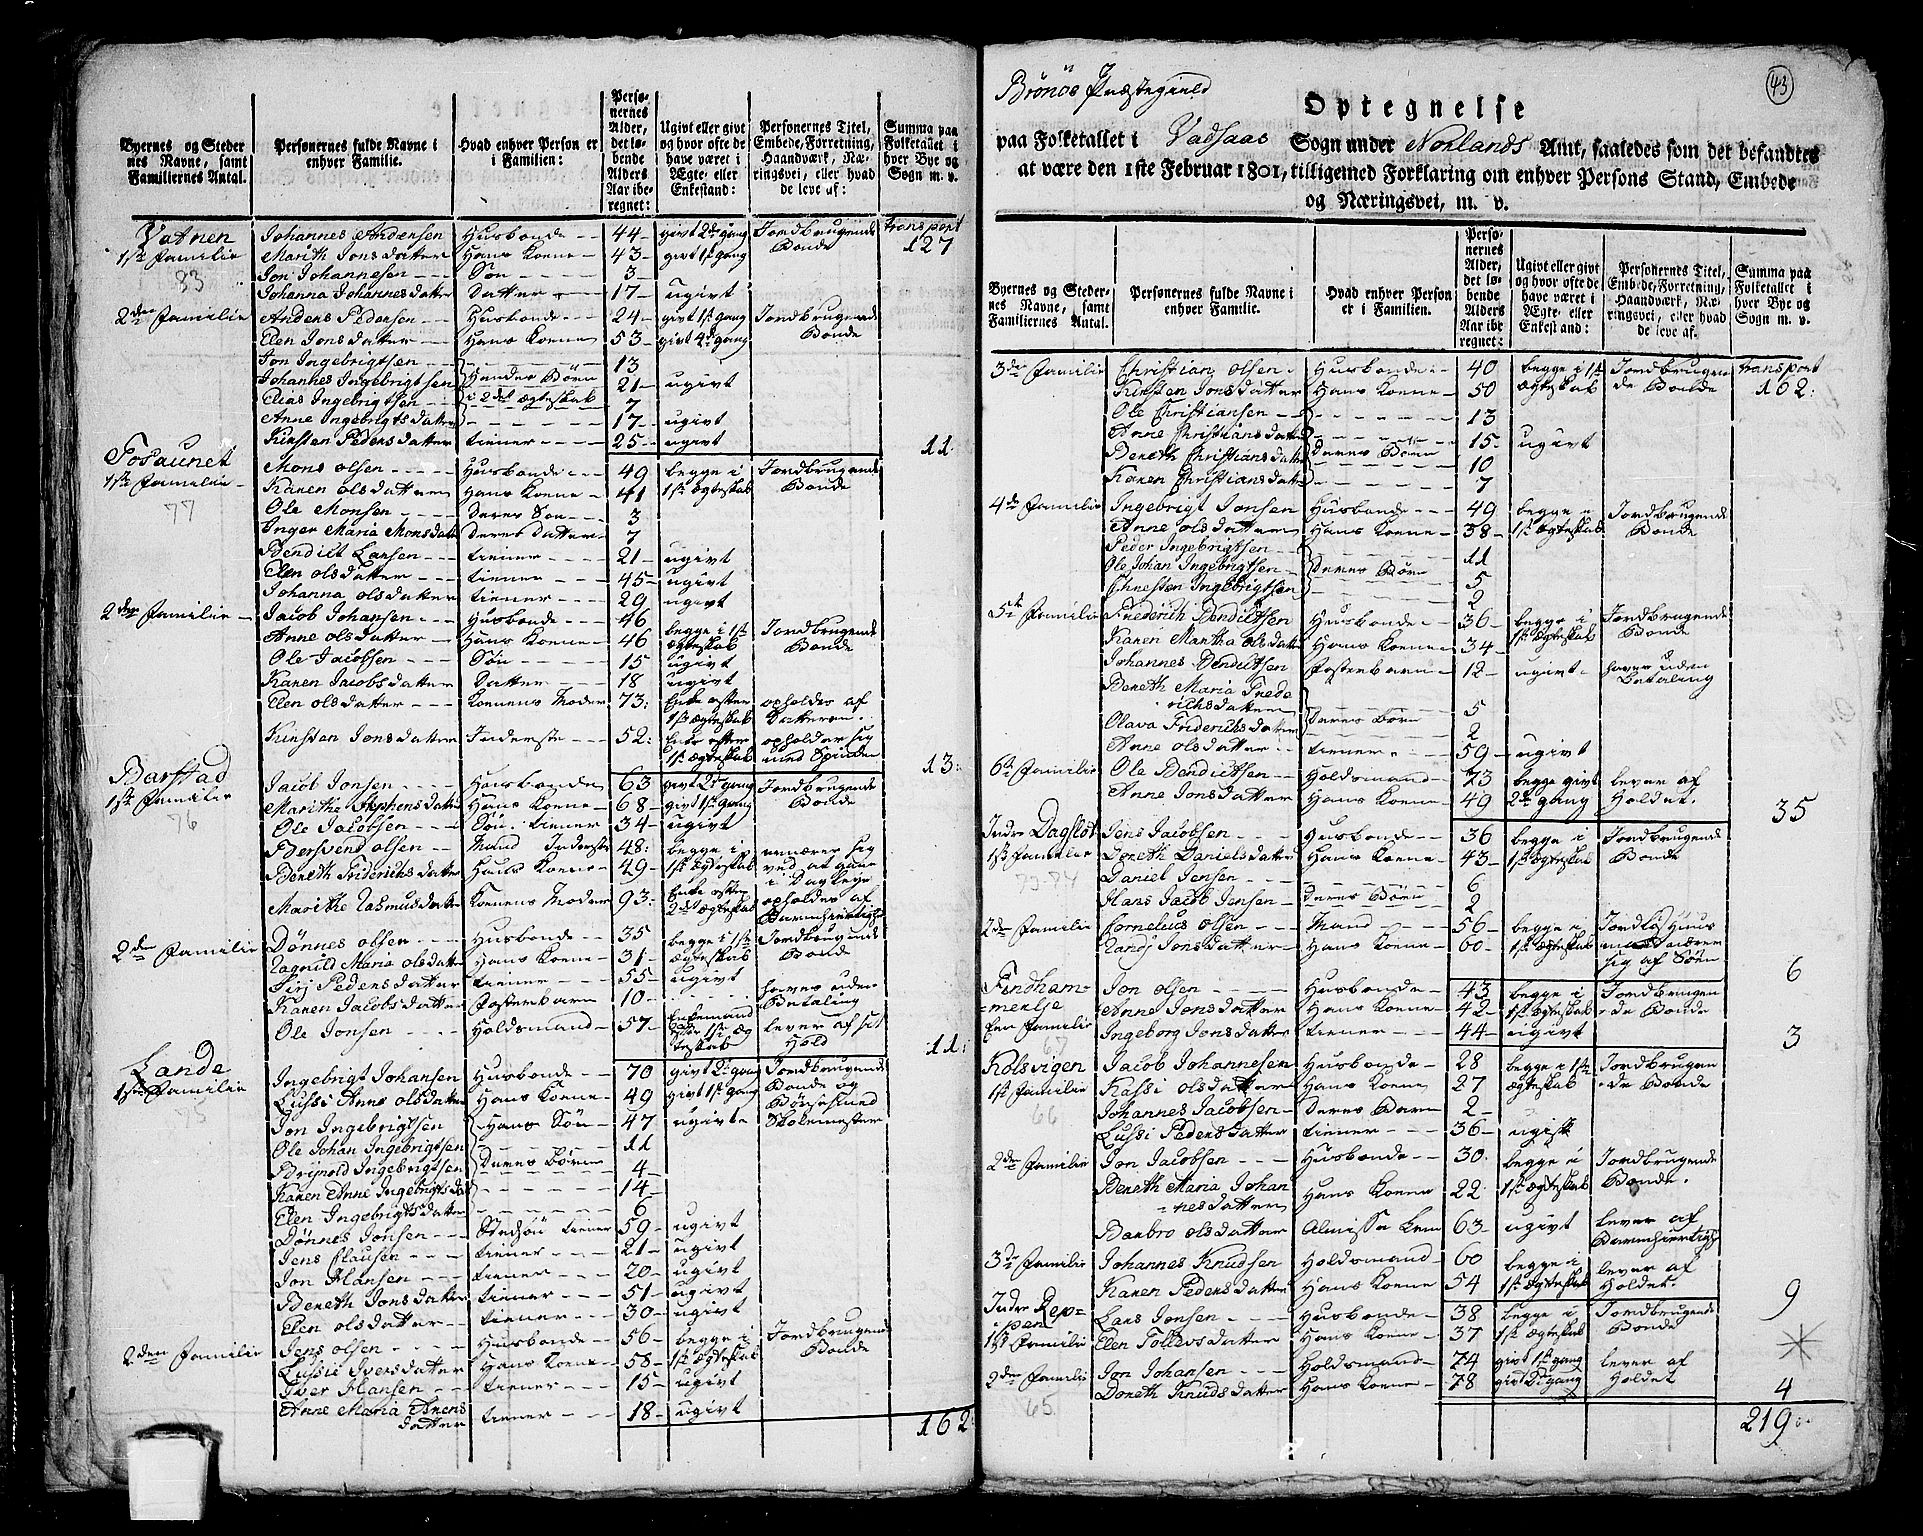 Byernes og Steder
nes Navne, samt
Familiernes Antal.
Personernes fulde Navne i
enhver Familie.
Hvad enhver Person er
i Familien:
Perso-
nernes
Alder,
det lø-
bende
Alders
Aar ibe-
regnet:
Ugivt eller givt
og hvor ofte de
have været i
Ægte- eller
Enkestand:
Personernes Titel,
Embede, Forretning,
Haandværk, Næ-
ringsvei, eller hvad
de leve af:
Summa paa
Folketallet i
hver Bye og
Sogn m. v.
Vatnen Johannes Andersen Husbonde 44 givt 2de gang Jordbrugende transport
1ste Familie Marith Jonsdatter Hans Kone 43 givt 1ste gang Bonde 127
83 Jon Johannesen Søn 3
Johanna Johannesdatter Datter 17 ugivt
2den Familie Anders Pedersen Husbonde 24 givt 1ste gang Jordbrugende
Elen Jonsdatter Hans Kone 53 givt 2de gang Bonde
Jon Ingebrigtsen 13
Johannes Ingebrigtsen Hendes Børn 21 ugivt
Elias Ingebrigtsen i 2det ægteskab 7
Anne Ingebrigtsdatter 17 ugivt
Kirsten Pedersdatter tiener 25 ugivt 11
Tosaunet Mons Olsen Husbonde 49 begge i Jordbrugende
1ste Familie Karen Olsdatter Hans Kone 41 1ste ægteskab Bonde
77 Ole Monsen Deres Søn 3
Inger Maria Monsdatter Deres Datter 7
Bendict Larsen tiener 21 ugivt
Elen Olsdatter tiener 45 ugivt
Johanna Olsdatter tiener 29 ugivt
2den Familie Jacob Johansen Husbonde 46 begge i 1ste Jordbrugende
Anne Olsdatter Hans Kone 46 ægteskab Bonde
Ole Jacobsen Søn 15 ugivt
Karen Jacobsdatter Datter 18 ugivt
Elen Olsdatter Konens Moder 73 Enke efter opholdes af
1ste ægteskab Datteren
Kirsten Jonsdatter Inderste 52 Enke efter opholder sig
1ste ægteskab med Spinden 13
Barstad Jacob Jonsen Husbonde 63 givt 2de gang Jordbrugende
1ste Familie Marithe Stephensdatter Hans Kone 68 givt 1ste gang Bonde
76 Ole Jacobsen Søn tiener 34 ugivt
Bersvend Olsen Mand Inderste 48 begge i ernærer sig
Bereth Fridrichsdatter Hans Kone 49 1ste ægteskab ved at gaae
i Dagleye
Marithe Rasmusdatter Konens Moder 93 Enke efter opholdes af
2det ægteskab Barmhiertigh
2den Familie Dønnes Olsen Husbonde 35 begge i 1ste Jordbrugende
Ragnild Maria Olsdatter Hans Kone 31 ægteskab Bonde
Sirj Pedersdatter tiener 55 ugivt
Karen Jacobsdatter Fosterbarn 10 haves uden
Betaling
Ole Jonsen Holdsmand 57 Enkemand lever af sit
efter 1ste æg Hold
teskab 11
Lande Ingebrigt Johansen Husbonde 70 givt 2de gang Jordbrugende
1ste Familie Lussi Anne Olsdatter Hans Kone 49 givt 1ste gang Bonde og
75 Jon Ingebrigtsen Hans Søn 47 ugivt Skolemester
Ole Johan Ingebrigtsen 11
Brynold Ingebrigtsen Deres Børn 4
Karen Anne Ingebrigtsdat 14
Elen Ingebrigtsdatter 6
Dønnes Jonsen tiener 59 ugivt
Jens Clausen tiener 21 ugivt
Jon Hansen tiener 20 ugivt
Bereth Jonsdatter tiener 51 ugivt
Elen Olsdatter tiener 30 ugivt
2den Familie Jens Olsen Husbonde 56 begge i Jordbrugende
Lussie Iversdatter Hans Kone 58 1ste ægteskab Bonde
Iver Hansen tiener 15 ugivt
Anne Maria Arens
datter tiener 18 ugivt
162
43
Brønøe Præstegield
Optegnelse
paa Folketallet i Vadsaas Sogn under Norlands Amt, saaledes som det befandtes
at være den 1ste Februar 1801, tilligemed Forklaring om enhver Persons Stand, Embede
og Næringsvei, m. v.
Byernes og Steder-
nes Navne, samt
Familiernes Antal.
Personernes fulde Navne i
enhver Familie.
Hvad enhver Person
er i Familien.
Perso-
nernes
Alder,
det lø-
bende
Alders
Aar ibe-
regnet:
Ugivt eller givt
og hvor ofte de
have været i
Ægte- eller
Enkestand:
Personernes Titel,
Embede, Forretning,
Haandværk, Næ-
ringsvei, eller hvad
de leve af.
Summa paa
Folketallet i
hver Bye og
Sogn m. v.
3de Familie Christian Olsen Husbonde 40 begge i 1ste Jordbrugen transport
Kirsten Jonsdatter Hans Kone 50 ægteskab de Bonde 162
Ole Christiansen 13
Anne Christiansdatter 15 ugivt
Bereth Christiansdatter Deres Børn 10
Karen Christiansdatter 7
4de Familie Ingebrigt Jonsen Husbonde 49 begge i Jordbrugende
Anne Olsdatter Hans Kone 38 1ste ægteskab Bonde
Peder Ingebrigtsen 11
Ole Johan Ingebrigtsen Deres Børn 5
Christen Ingebrigtsen 2
5te Familie Friderich Bendictsen Husbonde 36 begge i Jordbrugende
Karen Martha Olsdatter Hans Kone 34 1ste ægteskab Bonde
Johannes Bendictsen Fosterbarn 12 ugivt haves uden
Betaling
Bereth Maria Frede
richsdatter 5
Olava Friderichsdatter Deres Børn 2
Anne Olsdatter tiener 59 ugivt
6te Familie Ole Bendictsen Holdsmand 73 begge givt lever af
Anne Jonsdatter Hans Kone 49 2de gang Holdet. 35
Indre Dagslot Jens Jacobsen Husbonde 36 begge i Jordbrugende
1ste Familie Doreth Danielsdatter Hans Kone 43 1ste ægteskab Bonde
Daniel Jensen 6
Hans Jacob Jensen Deres Børn 2
2den Familie Cornelius Olsen Mand 56 begge i Jordløs Huus
Randj Jonsdatter Hans Kone 60 1ste ægteskab mand nærer
sig af Søen 6
Findham- Jon Olsen Husbonde 43 begge i Jordbrugen
Anne Jonsdatter Hans Kone 42 1ste ægteskab de Bonde
Een Familie Ingeborg Jonsdatter tiener 44 ugivt 3
67
Rolsvigen Jacob Johannesen Husbonde 28 begge i 1ste Jordbrugen
1ste Familie Kassi Olsdatter Hans Kone 27 ægteskab de Bonde
66 Johannes Jacobsen Deres Barn 2
Lussi Pedersdatter tiener 36 ugift
2de Familie Jon Jacobsen Husbonde 30 begge i Jordbrugende
Bereth Maria Johan Hans Kone 22 1ste ægteskab Bonde.
nesdatter
Barbro Olsdatter Almisse Lem 63 ugivt lever af
Barmhiertigh
3de Familie Johannes Knudsen Holdsmand 60 begge i lever af
Karen Pedersdatter Hans Kone 54 1ste ægteskab Holdet. 9
Indre Rep- Lars Jonsen Husbonde 38 begge i Jordbrugende
pen
1ste Familie Elen Tollevsdatter Hans Kone 37 1ste ægteskab Bonde
2de Familie Jon Johansen Holdsmand 74 givt 1ste gang lever af
Doreth Knudsdatter Hans Kone 78 givt 2de gang Holdet 4
65
219